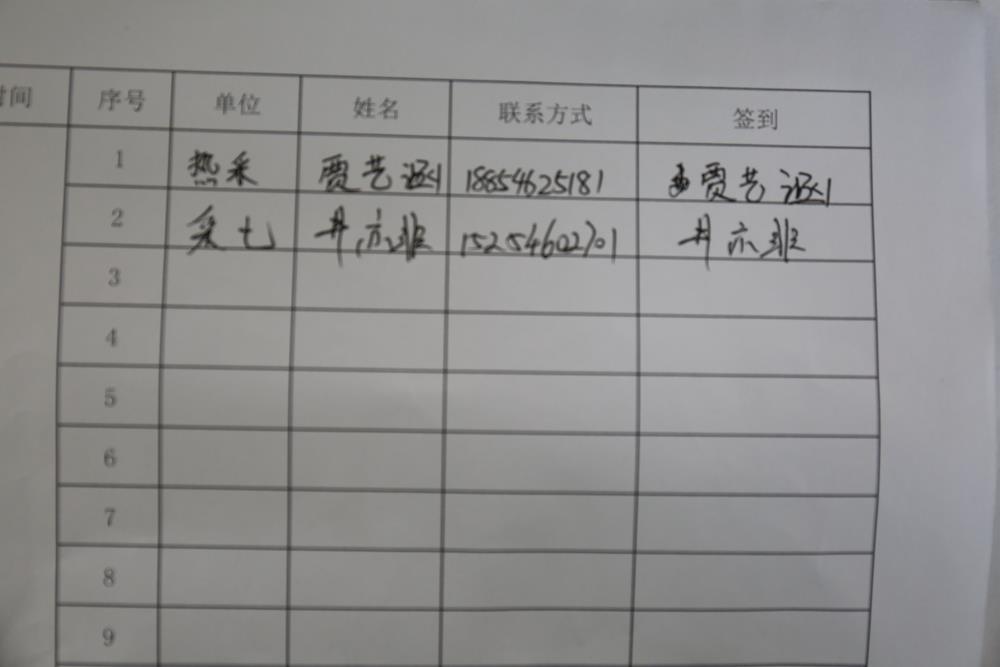 时间 序号 单位 姓名 联系方式 签到
1 热采 贾艺 18854625181 贾艺
2 采七 井亦 15254602701 井亦
3
4
5
6
7
8
9